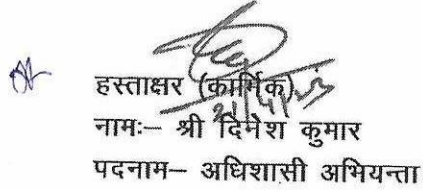 हस्ताक्षर (कार्मिक)
नामः– श्री दिनेश कुमार
पदनाम– अधिशासी अभियन्ता